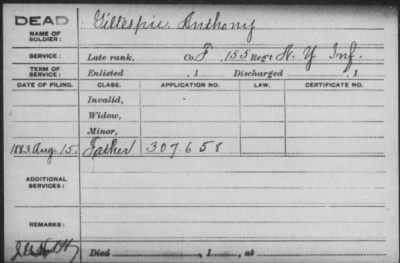 DEAD
NAME OF SOLDIER: Gillespie Anthony
SERVICE: Late rank, Co. F, 155 Reg't N. Y Inf.
TERM OF SERVICE: Enlisted , 1 Discharged , 1
DATE OF FILING. CLASS. APPLICATION NO. LAW. CERTIFICATE NO.
Invalid,
Widow,
Minor,
1883 Aug 15. Father 307658
ADDITIONAL SERVICES:
REMARKS:
Died , 1 , at